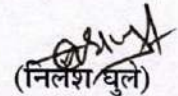 (निलेश घुले)